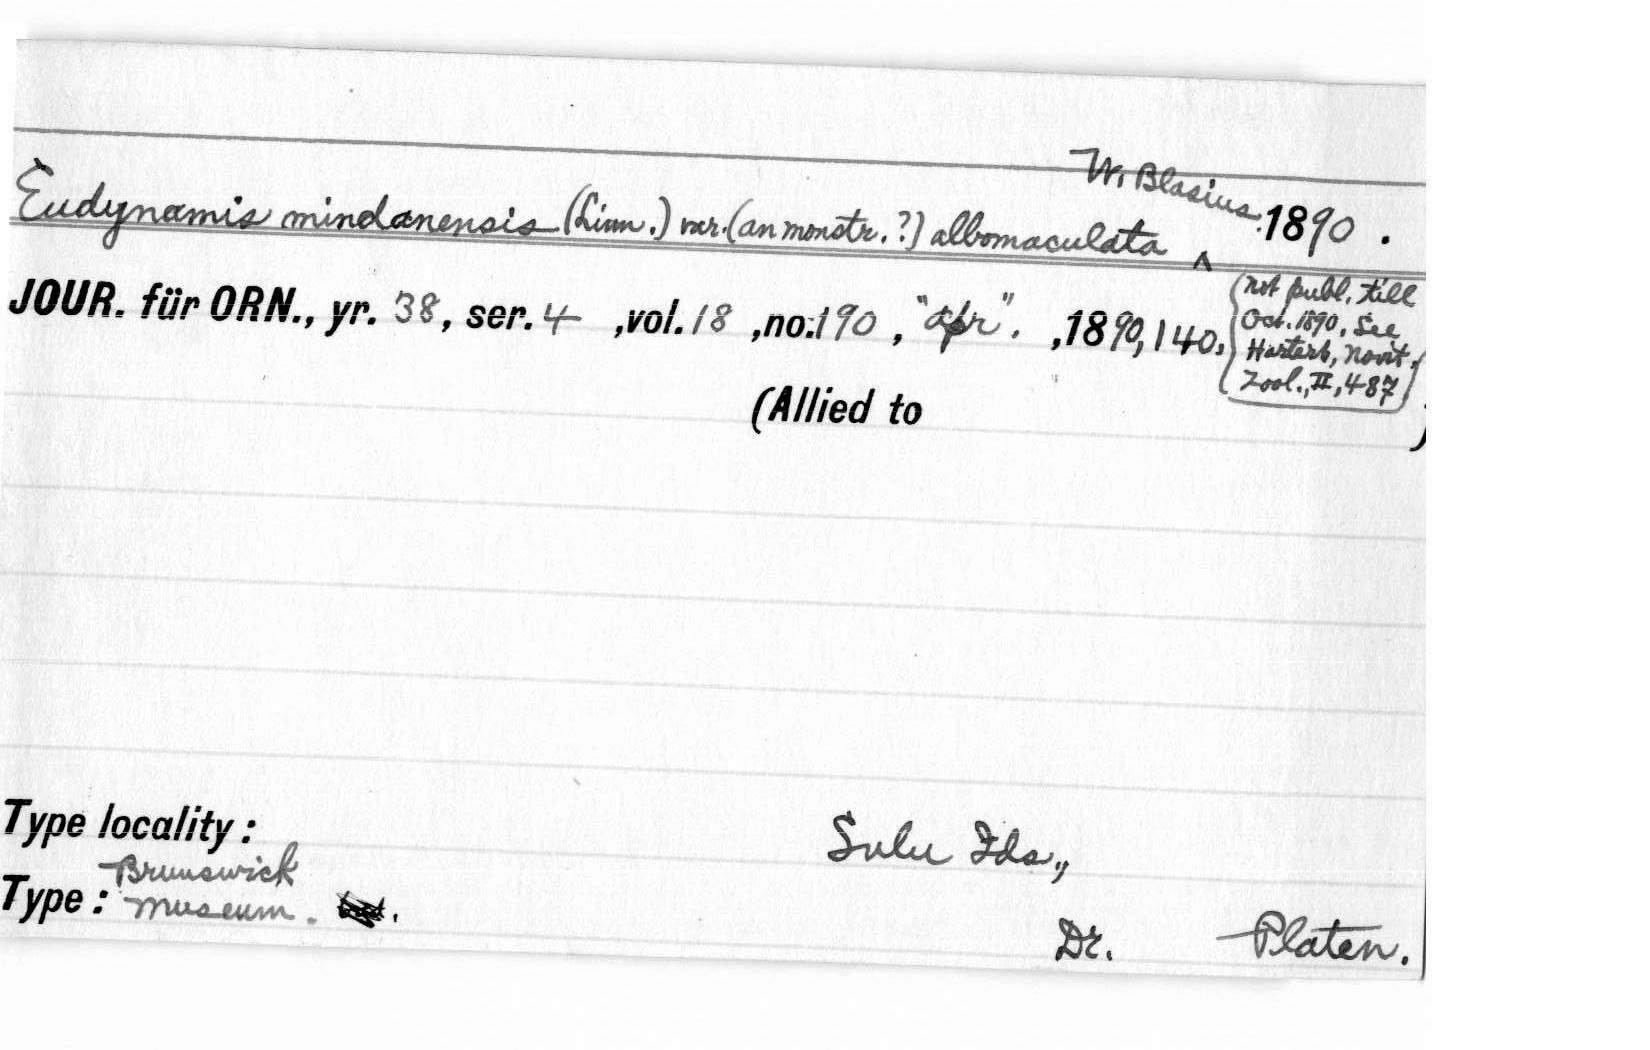 Eudynamis mindanensis (Linn.) var. (an monstr.?) albomaculata ^ W. Blasius. 1890.
JOUR. für ORN., yr. 38, ser. 4 ,vol. 18 ,no. 190 , "Apr". ,1890, 140,
(not publ. till
Oct. 1890, See
Hartert, Novit.
Zool., II, 487)
(Allied to )
Type locality:
Sulu Ids.,
Type: Brunswick
museum.
Dr. Platen.